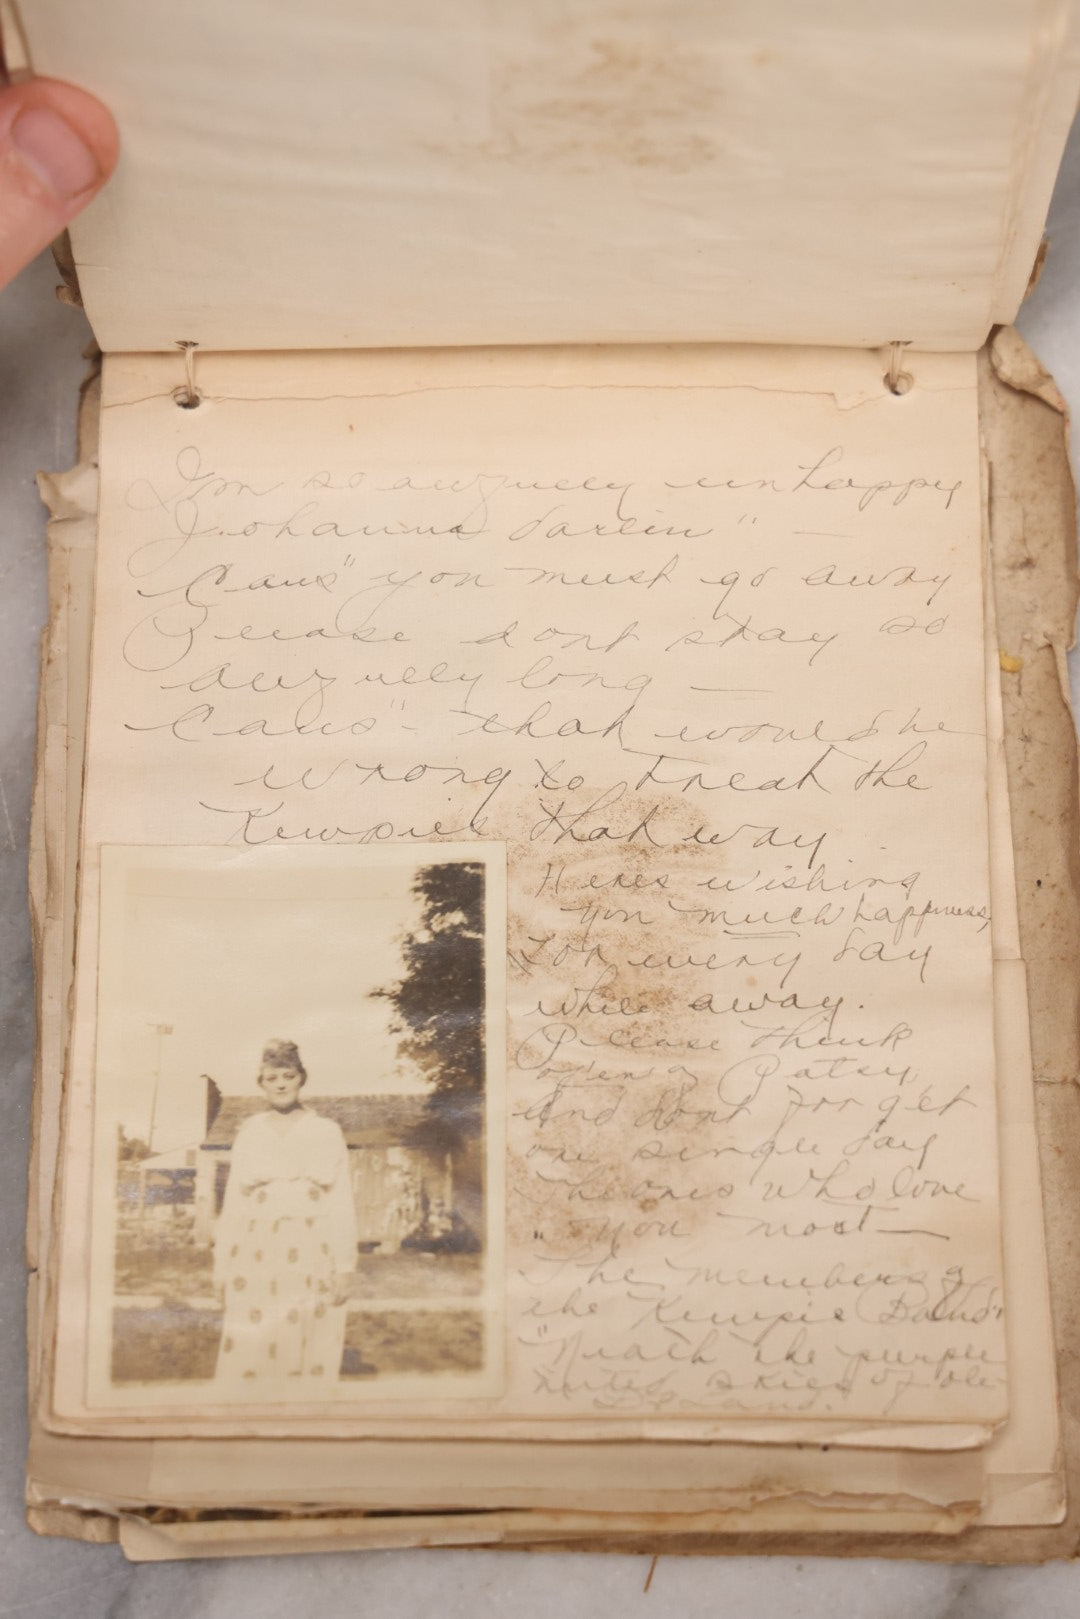 I'm so awfully unhappy
Johanna darlin" —
Caus" you must go away
Please dont stay so
awfully long —
Caus" - that would be
wrong to treat the
Kewpies that way
Heres wishing
you much happiness,
For every day
while away.
Please think
often of Patsy,
And dont forget
one single day
The ones who love
" you most —
The members of
the Kewpie Band"
"Neath the purple
skies of ole
De Land.